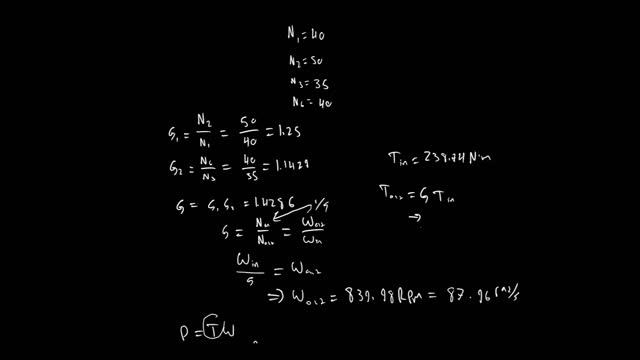 N₁ = 40
N₂ = 50
N₃ = 35
N₄ = 40
G₁ = N₂/N₁ = 50/40 = 1.25
G₂ = N₄/N₃ = 40/35 = 1.1429
G = G₁ G₂ = 1.4286
1/G
G = = ω
ω_in/G = ω_out
⇒ ω_out = 839.98 RPM = 87.96 rad/s
P = Tω
T_in = 239.74 N·m
T_out = G T_in
⇒